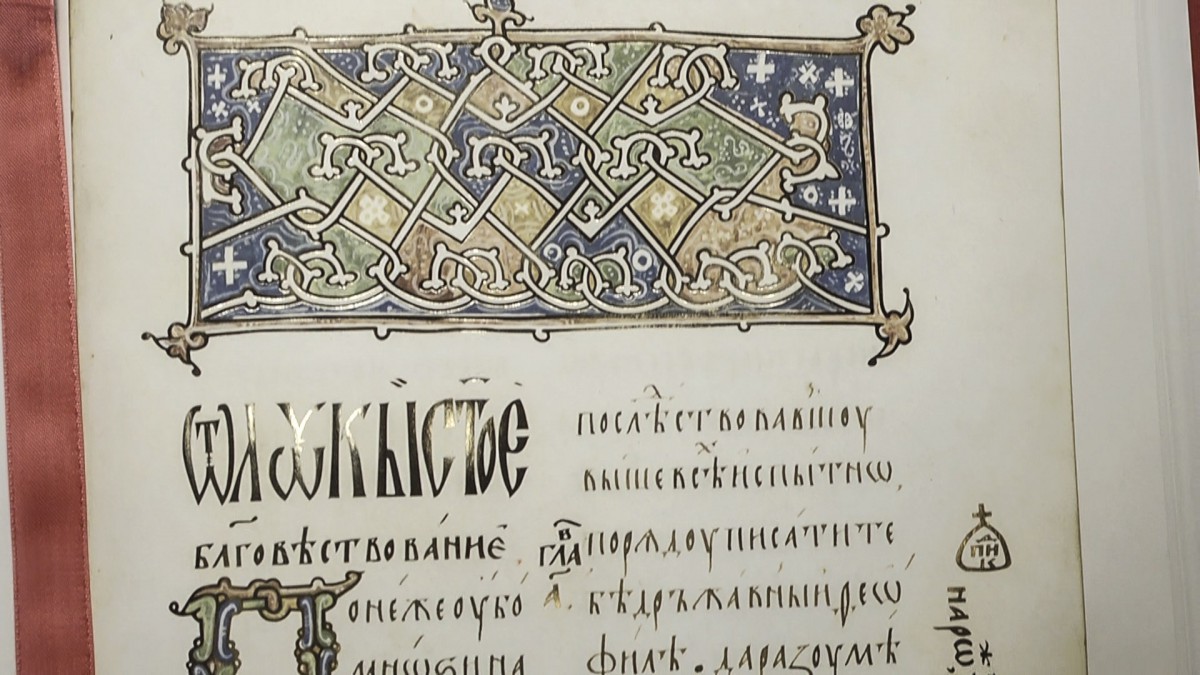 ѿ лꙋкы ст҃ое
бл҃говѣствованїе гла҃в а҃.
Понеже оубо
мнѡѕи на
послѣдствовавшоу
выше всѣ испытнѡ,
порѧдоу писати те
бѣ дръжавныи ѳеѡ
филе. да разоумѣ